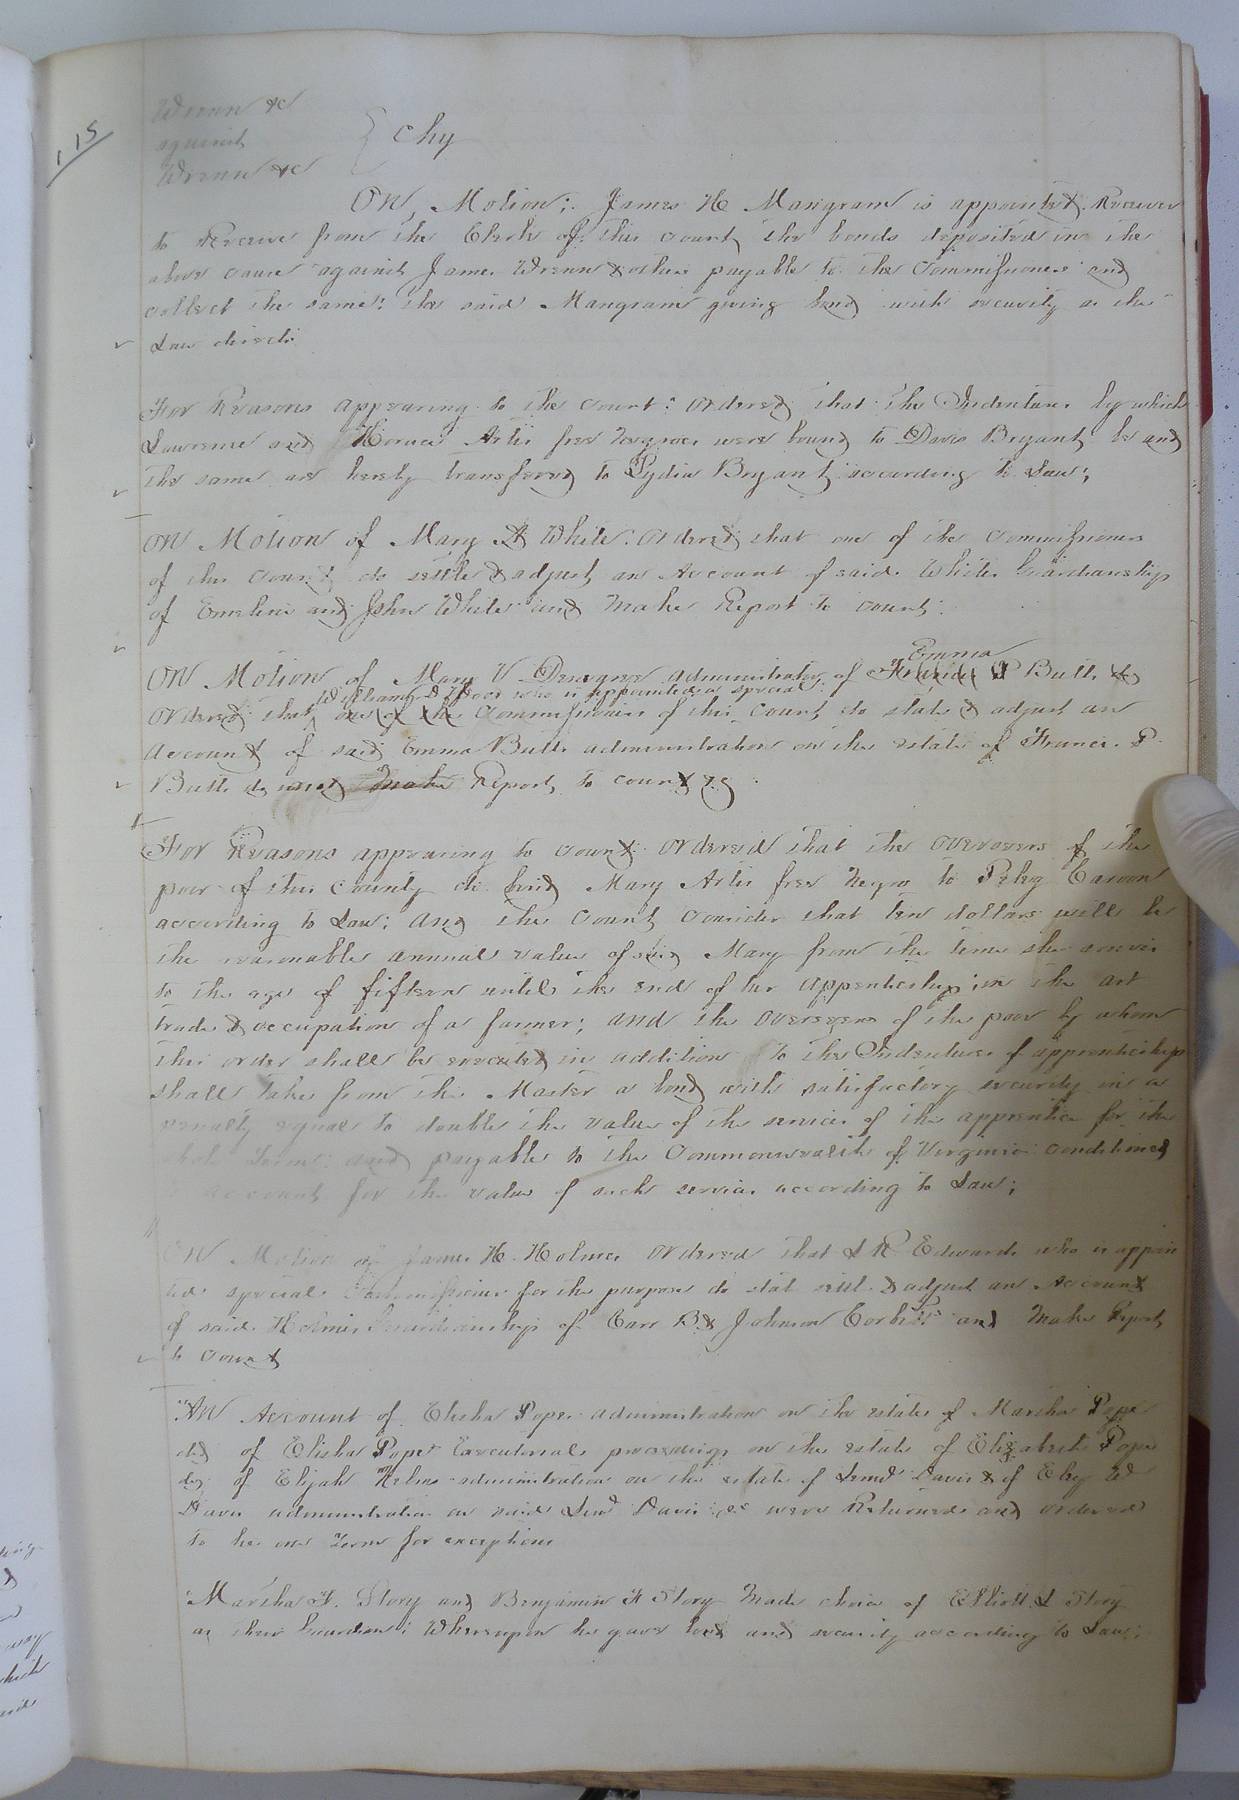 115
Wrenn &c
against
Wrenn &c
Chy
On Motion; James H Mangram is appointed Receiver
to Receive from the Clerk of this Court the bonds deposited in the
above cause against James Wrenn & others payable to the Commissioners and
collect the same: the said Mangram giving bond with security as the
Law directs
For Reasons appearing to the court: ordered that the Indentures by which
Lawrence and Horace Artis free negroes were bound to Davis Bryant be and
the same are hereby transfered to Lydia Bryant according to Law;
On Motion of Mary A White: ordered that one of the Commissioners
of this Court do settle & adjust an Account of said Whites Guardianship
of Emeline and John White and Make Report to Court.
Emma
On Motion of Mary V administrator of P Butts &c
who is appointed a special
ordered that one of the Commissioners of this Court do state & adjust an
Account of said Emma Butts administration on the estate of Francis P
Butts decd and Make Report to Court &c
For Reasons appearing to Court ordered that the overseers of the
poor of this County do bind Mary Artis free Negro to
according to Law; and the Court consider that ten dollars will be
the reasonable annual value of said Mary from the time she arrives
to the age of fifteen until the end of her apprenticeship; in the art
trade & occupation of a farmer; and the overseers of the poor by whom
this order shall be executed in addition to the Indentures of apprenticeship
shall take from the Master a bond with satisfactory security in a
penalty equal to double the value of the services of the apprentice for the
whole Term: and payable to the Commonwealth of Virginia conditioned
to account for the value of such services according to Law;
On Motion of James H. Holmes ordered that L R Edwards who is appoin
ted special Commissioner for the purpose do state settle & adjust an Account
of said Holmes Guardianship of Carr B & Johnson Corbitt and Make Report
to Court
An Account of Elisha Popes administration on the estate of Marsha Pope
do of Elisha Popes Executorial proceedings on the estate of Elizabeth Pope
do of Elijah administration on the estate of Davis & of W
Davis administration on said Davis &c were Returned and ordered
to lie one Term for exceptions
Marsha F. Story and Benjamin F Story Made choice of Elliott L Story
as their Guardian: Whereupon he gave bond and security according to Law;